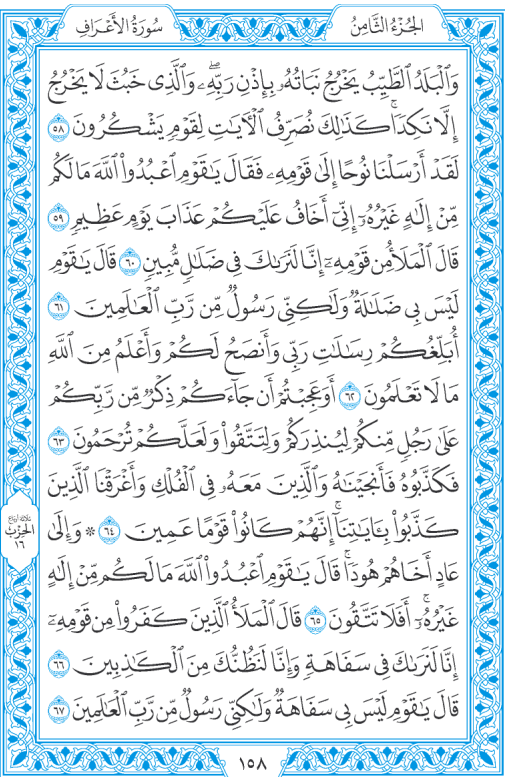 الجُزْءُ الثَّامِنُ
سُورَةُ الأَعْرَافِ
وَٱلْبَلَدُ ٱلطَّيِّبُ يَخْرُجُ نَبَاتُهُۥ بِإِذْنِ رَبِّهِۦۖ وَٱلَّذِى خَبُثَ لَا يَخْرُجُ
إِلَّا نَكِدًاۚ كَذَٰلِكَ نُصَرِّفُ ٱلْأَيَٰتِ لِقَوْمٍ يَشْكُرُونَ ٥٨
لَقَدْ أَرْسَلْنَا نُوحًا إِلَىٰ قَوْمِهِۦ فَقَالَ يَٰقَوْمِ ٱعْبُدُوا۟ ٱللَّهَ مَا لَكُم
مِّنْ إِلَٰهٍ غَيْرُهُۥٓ إِنِّىٓ أَخَافُ عَلَيْكُمْ عَذَابَ يَوْمٍ عَظِيمٍ ٥٩
قَالَ ٱلْمَلَأُ مِن قَوْمِهِۦٓ إِنَّا لَنَرَىٰكَ فِى ضَلَٰلٍ مُّبِينٍ ٦٠ قَالَ يَٰقَوْمِ
لَيْسَ بِى ضَلَٰلَةٌ وَلَٰكِنِّى رَسُولٌ مِّن رَّبِّ ٱلْعَٰلَمِينَ ٦١
أُبَلِّغُكُمْ رِسَٰلَٰتِ رَبِّى وَأَنصَحُ لَكُمْ وَأَعْلَمُ مِنَ ٱللَّهِ
مَا لَا تَعْلَمُونَ ٦٢ أَوَعَجِبْتُمْ أَن جَآءَكُمْ ذِكْرٌ مِّن رَّبِّكُمْ
عَلَىٰ رَجُلٍ مِّنكُمْ لِيُنذِرَكُمْ وَلِتَتَّقُوا۟ وَلَعَلَّكُمْ تُرْحَمُونَ ٦٣
فَكَذَّبُوهُ فَأَنجَيْنَٰهُ وَٱلَّذِينَ مَعَهُۥ فِى ٱلْفُلْكِ وَأَغْرَقْنَا ٱلَّذِينَ
كَذَّبُوا۟ بِـَٔايَٰتِنَآۚ إِنَّهُمْ كَانُوا۟ قَوْمًا عَمِينَ ٦٤ ۞ وَإِلَىٰ
عَادٍ أَخَاهُمْ هُودًاۚ قَالَ يَٰقَوْمِ ٱعْبُدُوا۟ ٱللَّهَ مَا لَكُم مِّنْ إِلَٰهٍ
غَيْرُهُۥٓۚ أَفَلَا تَتَّقُونَ ٦٥ قَالَ ٱلْمَلَأُ ٱلَّذِينَ كَفَرُوا۟ مِن قَوْمِهِۦٓ
إِنَّا لَنَرَىٰكَ فِى سَفَاهَةٍ وَإِنَّا لَنَظُنُّكَ مِنَ ٱلْكَٰذِبِينَ ٦٦
قَالَ يَٰقَوْمِ لَيْسَ بِى سَفَاهَةٌ وَلَٰكِنِّى رَسُولٌ مِّن رَّبِّ ٱلْعَٰلَمِينَ ٦٧
ثلاثة أرباع
الحِزْب
١٦
١٥٨